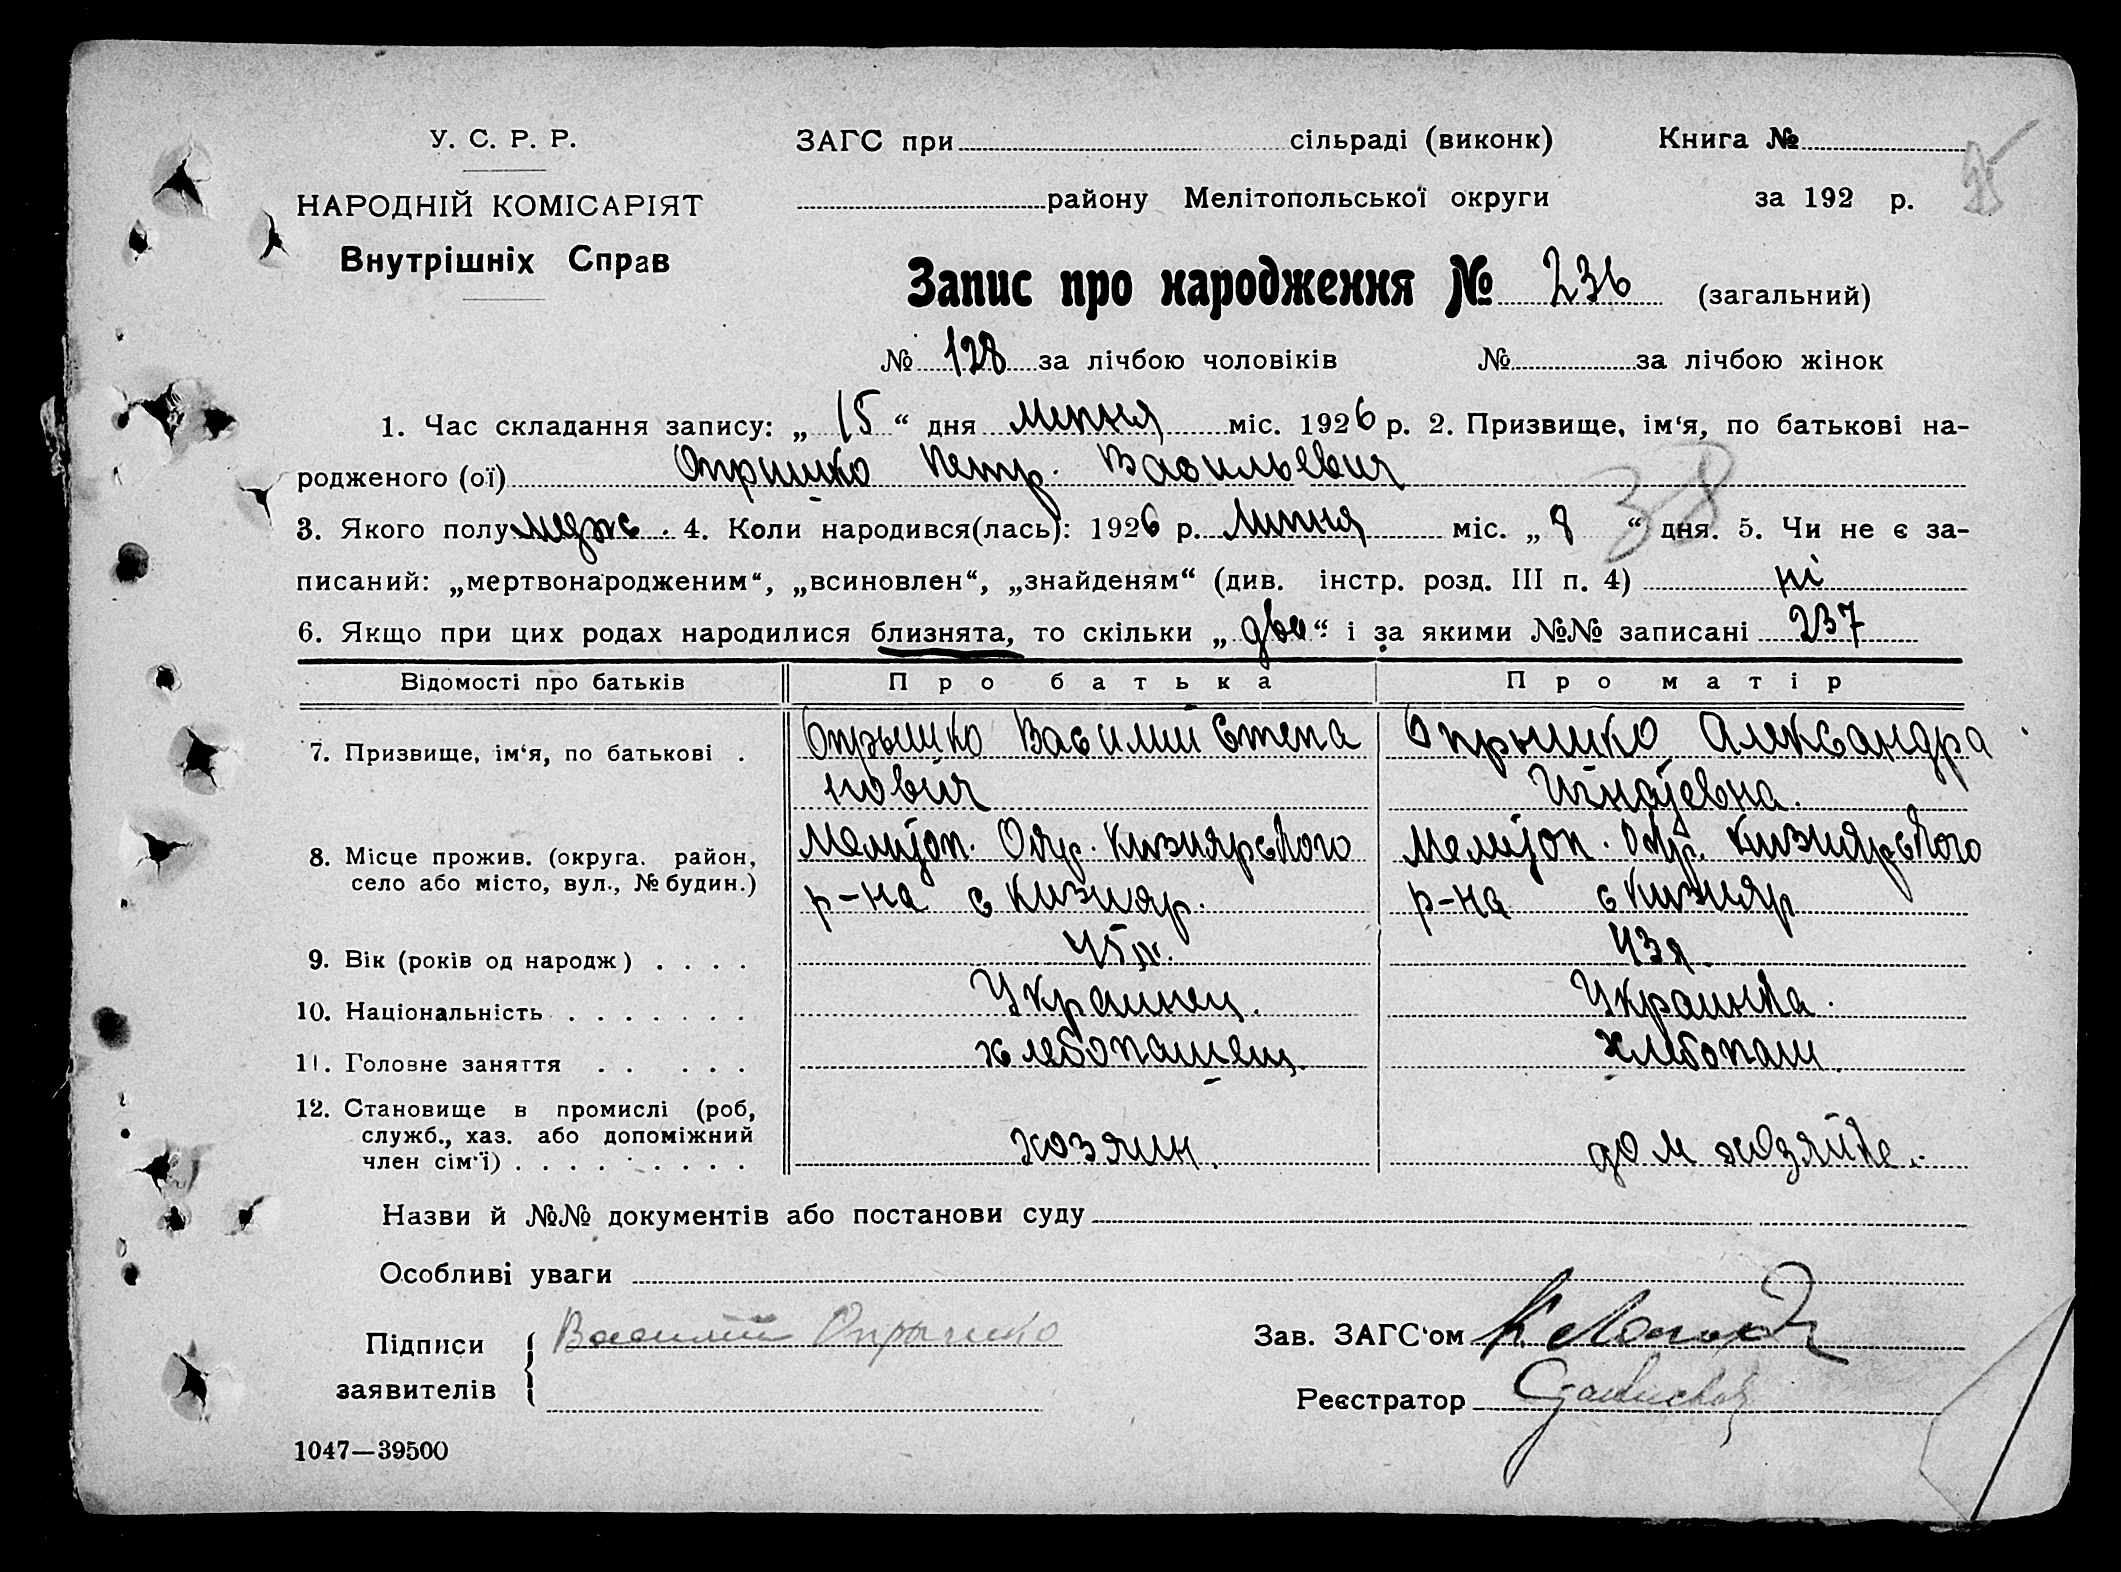 У. С. Р. Р.
НАРОДНІЙ КОМІСАРІЯТ
Внутрішніх Справ
ЗАГС при сільраді (виконк) Книга №
району Мелітопольської округи за 192 р.
Запис про народження № 236 (загальний)
№ 128 за лічбою чоловіків № за лічбою жінок
1. Час складання запису: „ 15 “ дня липня міс. 1926 р. 2. Призвище, ім‘я, по батькові на-
родженого (ої) Опришко Петр. Васильевич
38
3. Якого полу 4. Коли народився(лась): 1926 р. липня міс. „ 8 “ дня. 5. Чи не є за-
писаний: „мертвонародженим“, „всиновлен“, „знайденям“ (див. інстр. розд. III п. 4) ні
6. Якщо при цих родах народилися близнята, то скільки „ два “ і за якими №№ записані 237
Відомості про батьків Про батька Про матір
7. Призвище, ім‘я, по батькові . Опрышко Василий Степа Опрышко Александра
нович Игнатевна.
8. Місце прожив. (округа. район, Мелитоп. Окр. Кизиярского Мелитоп. Окр. Кизиярского
село або місто, вул., № будин.) р-на с Кизияр. р-на с Кизияр
9. Вік (років од народж) . . . . 45 л. 43 л
10. Національність . . . . . . . Украинец. Украинка.
11. Головне заняття . . . . . хлебопашец. хлебопаш
12. Становище в промислі (роб,
служб., хаз. або допоміжний
член сім‘ї) . . . . . . . . . хозяин. дом хозяйке.
Назви й №№ документів або постанови суду
Особливі уваги
Підписи Василий Опрышко Зав. ЗАГС‘ом
заявителів Реєстратор
1047—39500